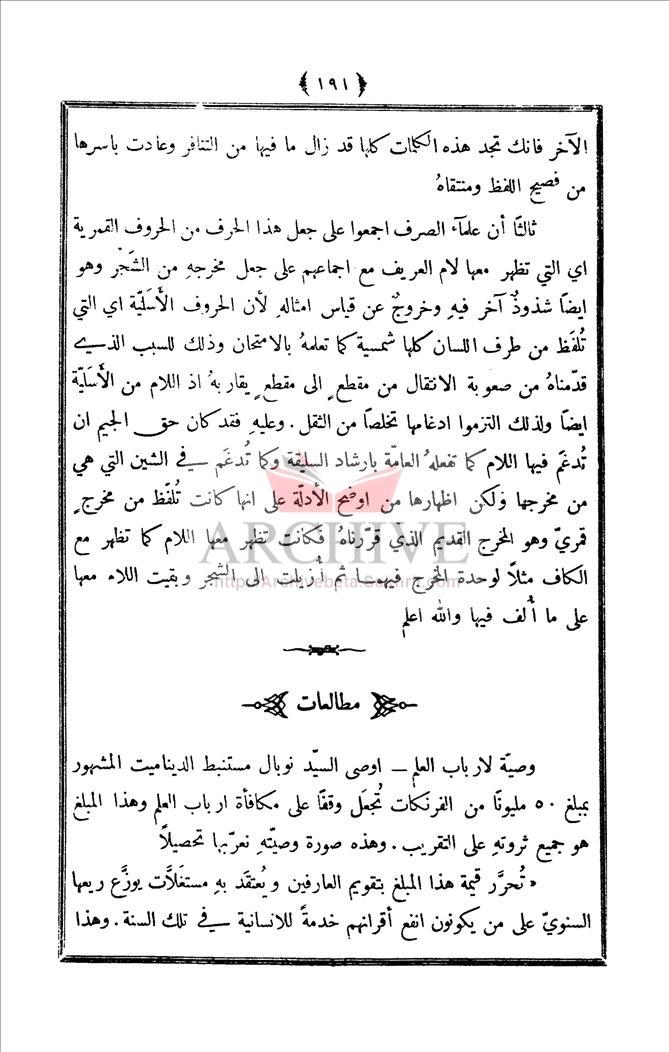 ﴿ ١٩١ ﴾
الآخر فانك تجد هذه الكلمات كلها قد زال ما فيها من التنافر وعادت باسرها
من فصيح اللفظ ومنتقاهُ
ثالثًا أن علمآء الصرف اجمعوا على جعل هذا الحرف من الحروف القمرية
اي التي تظهر معها لام العريف مع اجماعهم على جعل مخرجهِ من الشَجْر وهو
ايضًا شذوذٌ آخر فيهِ وخروجٌ عن قياس امثالهِ لأن الحروف الأَسَليّة اي التي
تُلفَظ من طرف اللسان كلها شمسية كما تعلمهُ بالامتحان وذلك للسبب الذي
قدّمناهُ من صعوبة الانتقال من مقطعٍ الى مقطعٍ يقاربهُ اذ اللام من الأَسَليّة
ايضًا ولذلك التزموا ادغامها تخلصًا من الثقل . وعليهِ فقد كان حق الجيم ان
تُدغَم فيها اللام كما تفعلهُ العامّة بارشاد السليقة وكما تُدغَم في الشين التي هي
من مخرجها ولكن اظهارها من اوضح الأدلّة على انها كانت تُلفَظ من مخرجٍ
قمريّ وهو المخرج القديم الذي قرّرناهُ فكانت تظهر معها اللام كما تظهر مع
الكاف مثلاً لوحدة المخرج فيهما ثم أُزيلت الى الشجر وبقيت اللام معها
على ما أُلف فيها والله اعلم
ARCHIVE
مطالعات
وصيّة لارباب العلم — اوصى السيّد نوبال مستنبط الديناميت المشهور
بمبلغ ٥٠ مليونًا من الفرنكات تُجعَل وقفًا على مكافأة ارباب العلم وهذا المبلغ
هو جميع ثروتهِ على التقريب . وهذه صورة وصيّتهِ نعرّبها تحصيلاً
« تُحرَّر قيمة هذا المبلغ بتقويم العارفين ويُعتقَد بهِ مستغَلاَّت يوزَّع ريعها
السنويّ على من يكونون انفع أقرانهم خدمةً للانسانية في تلك السنة . وهذا